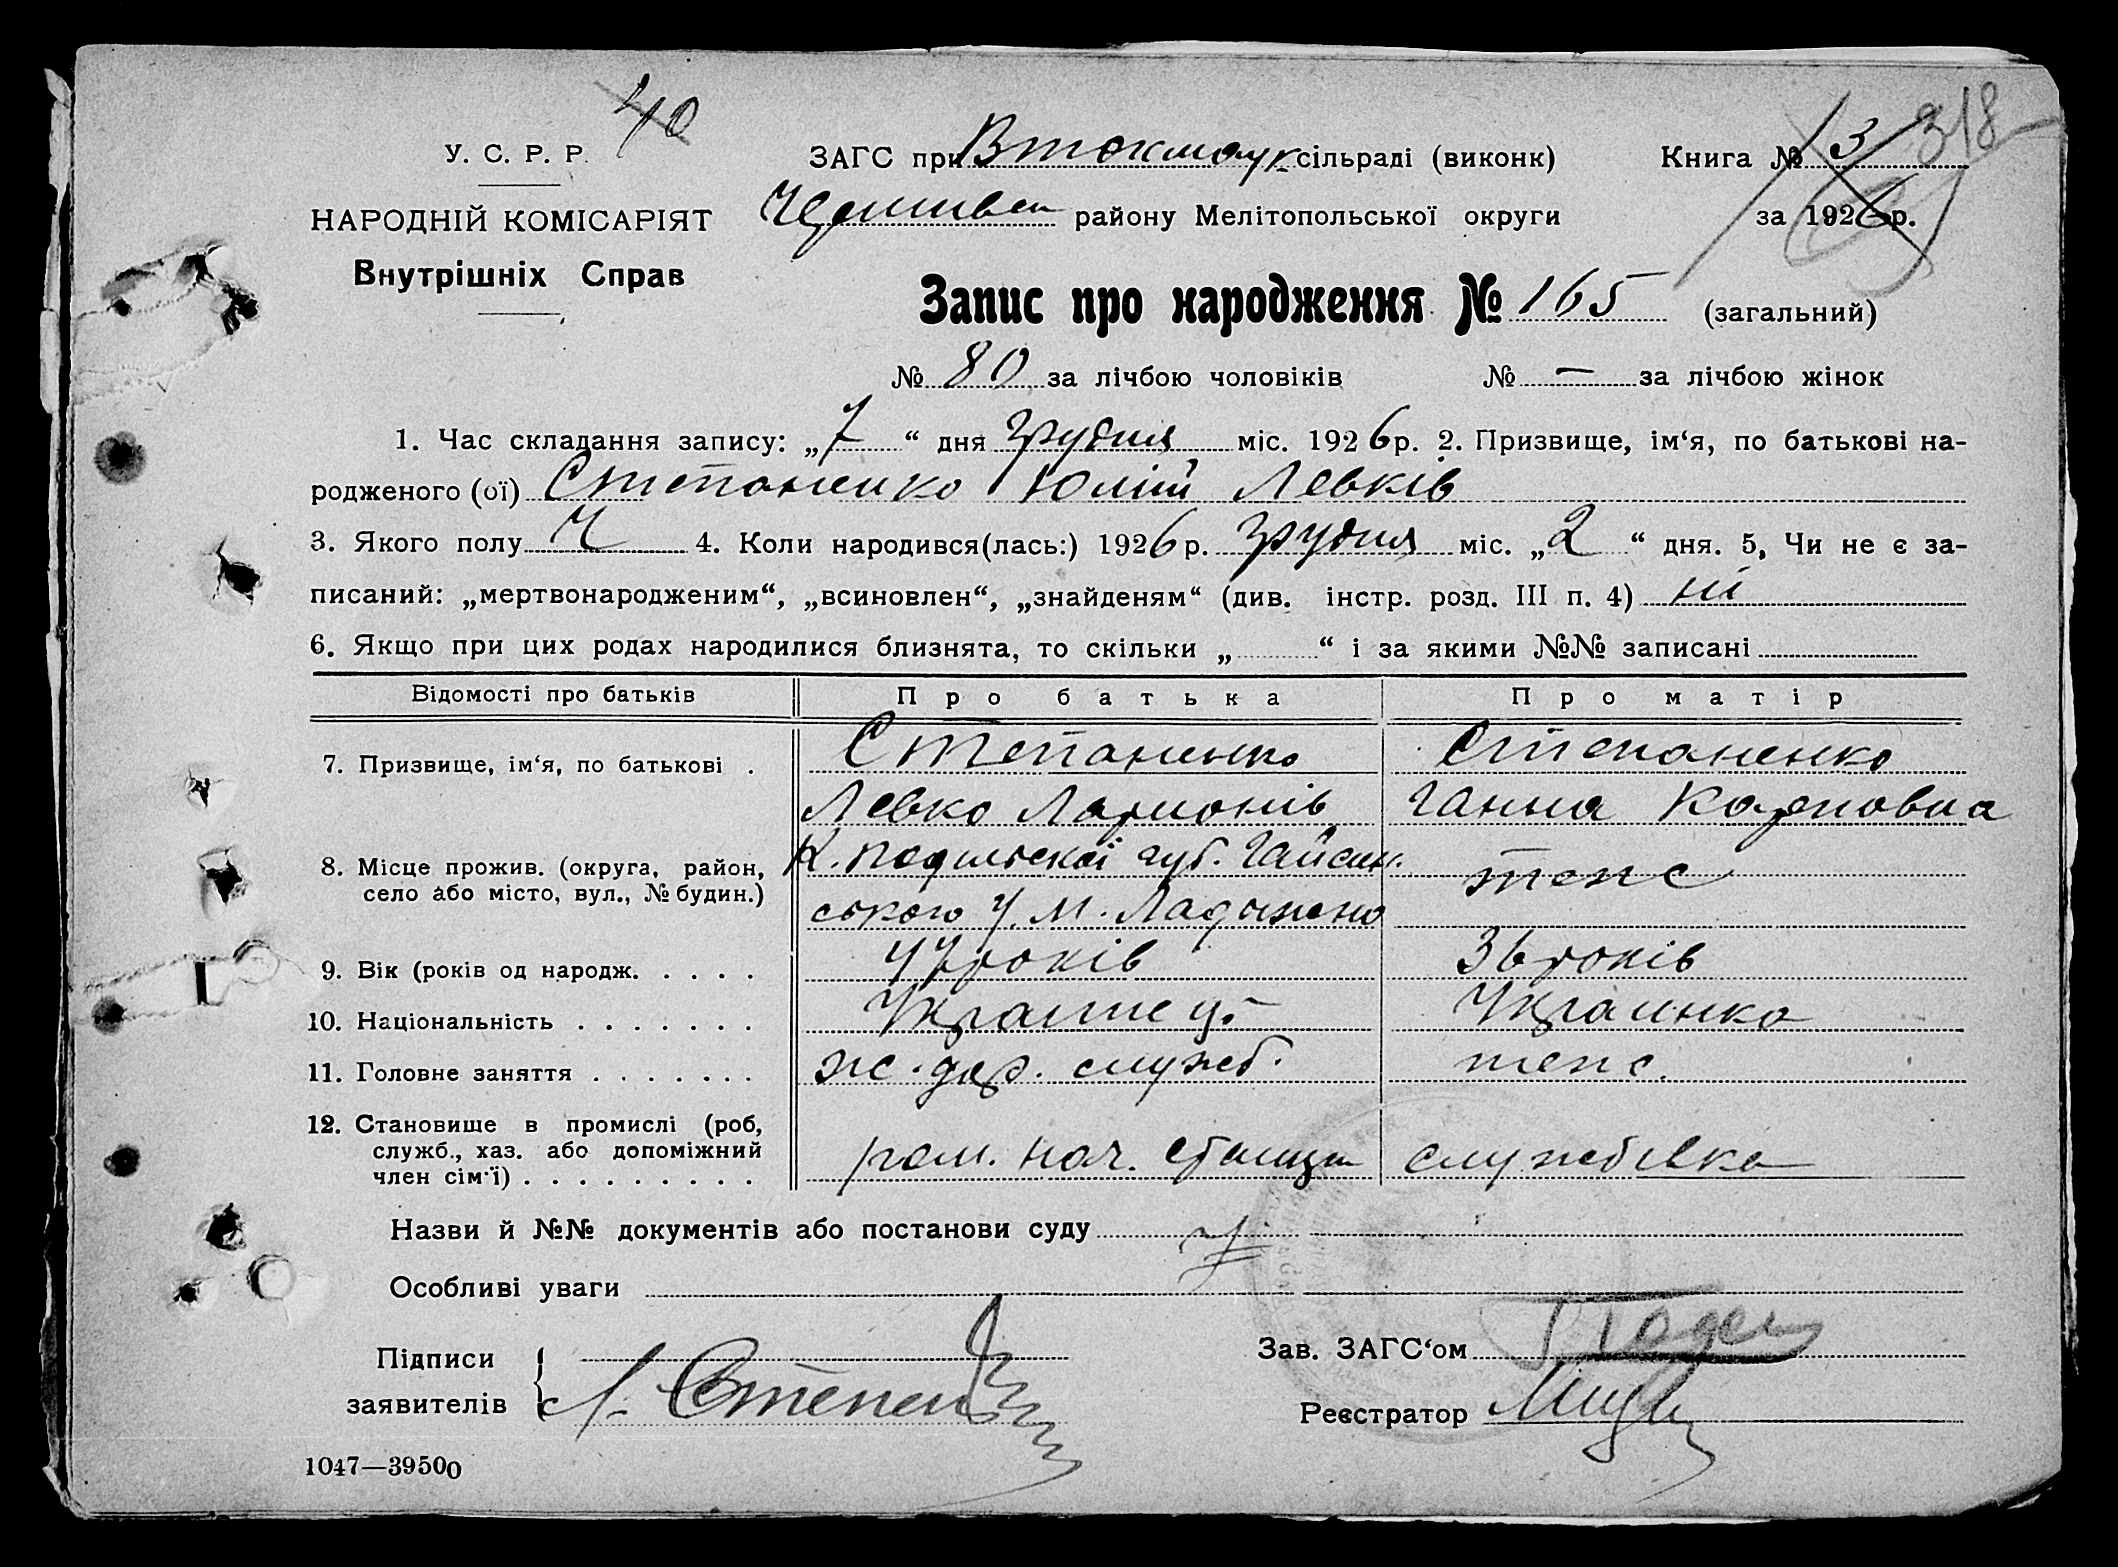 40
318
У. С. Р. Р.
ЗАГС при Втокмацк сільраді (виконк)
Книга № 3
НАРОДНІЙ КОМІСАРІЯТ
району Мелітопольської округи
за 1926 р.
Внутрішніх Справ
Запис про народження № 165 (загальний)
№ 80 за лічбою чоловіків № — за лічбою жінок
1. Час складання запису: „7“ дня грудня міс. 1926 р. 2. Призвище, ім‘я, по батькові на-
родженого (ої) Степаненко Юлій Левків
3. Якого полу Ч 4. Коли народився(лась:) 1926 р. грудня міс. „2“ дня. 5, Чи не є за-
писаний: „мертвонародженим“, „всиновлен“, „знайденям“ (див. інстр. розд. III п. 4) ні
6. Якщо при цих родах народилися близнята, то скільки „ “ і за якими №№ записані
Відомості про батьків Про батька Про матір
7. Призвище, ім‘я, по батькові . Степаненко Степаненко
Левко Ларионів Ганна Карповна
8. Місце прожив. (округа, район, К. Подильскої губ. Гайсин. тепс
село або місто, вул., № будин.) ського у. м. Ладижено
9. Вік (років од народж. . . . . 47 років 36 років
10. Національність . . . . . . . Украинец Украинка
11. Головне заняття . . . . . . . ж. дор. служб. тепс.
12. Становище в промислі (роб,
служб., хаз. або допоміжний пом. нач. станции службовка
член сім‘ї) . . . . . . . . .
Назви й №№ документів або постанови суду
Особливі уваги
Підписи
Зав. ЗАГС‘ом
заявителів Л. Степан
Реєстратор
1047—39500